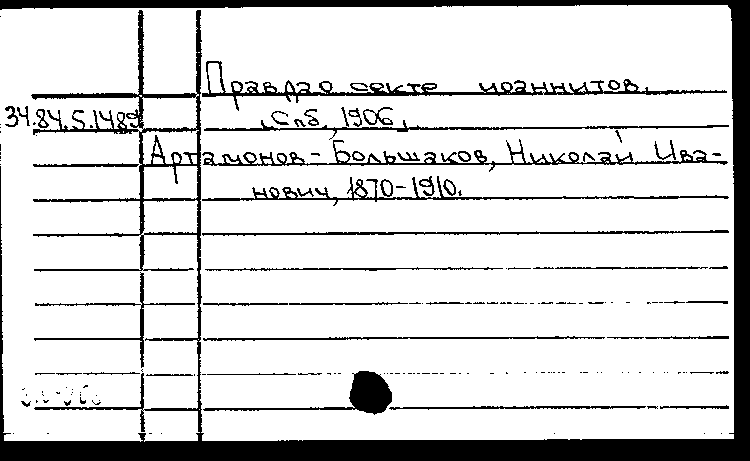 Правда о секте иоаннитов.
34.84.5.1489
[Спб., 1906]
Артамонов-Большаков, Николай Ива-
нович, 1870-1910.